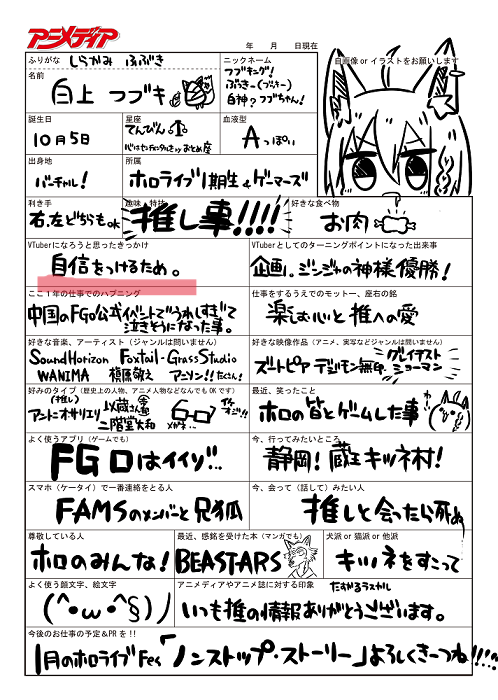 アニメディア
年 月 日現在
ふりがな しらかみ ふぶき
名前
白上 フブキ
ニックネーム
フブキング!
ぶらきー(ブッキー)
白神? フブちゃん!
自画像 or イラストをお願いします
誕生日
10月5日
星座
てんびん
血液型
Aっぽい
出身地
バーチャル!
所属
ホロライブ1期生&ゲーマーズ
利き手
右.左どちらもOK
趣味・特技
推し事!!!!
好きな食べ物
お肉
VTuberになろうと思ったきっかけ
自信をつけるため。
VTuberとしてのターニングポイントになった出来事
企画。ジンジャの神様優勝!
ここ1年の仕事でのハプニング
中国のFGO公式イベントでうれしすぎて
泣きそうになった事。
仕事をするうえでのモットー、座右の銘
楽しむ心と推への愛
好きな音楽、アーティスト(ジャンルは問いません)
SoundHorizon Foxtail-GrassStudio
WANIMA 槇原敬之 アニソン!!(たくさん!)
好きな映像作品(アニメ、実写などジャンルは問いません)
ズートピア デジモン無印 グレイテスト
ショーマン
好みのタイプ(歴史上の人物、アニメ人物などなんでもOKです)
(推し)
アントニオサリエリ 以蔵さん
二階堂大和 メガネ… イケオジ!!
最近、笑ったこと
ホロの皆とゲームした事
よく使うアプリ(ゲームでも)
FGOはイイゾ…
今、行ってみたいところ
静岡! 蔵王キツネ村!
スマホ(ケータイ)で一番連絡をとる人
FAMSのメンバーと兄狐
今、会って(話して)みたい人
推しと会ったら死ぬ
尊敬している人
ホロのみんな!
最近、感銘を受けた本(マンガでも)
BEASTARS
犬派 or 猫派 or 他派
キツネをすこって
よく使う顔文字、絵文字
(^・ω・^§)ノ
アニメディアやアニメ誌に対する印象
いつも推の情報ありがとうございます。
今後のお仕事の予定&PRを!!
1月のホロライブFes「ノンストップ・ストーリー」よろしくきーつね!!!